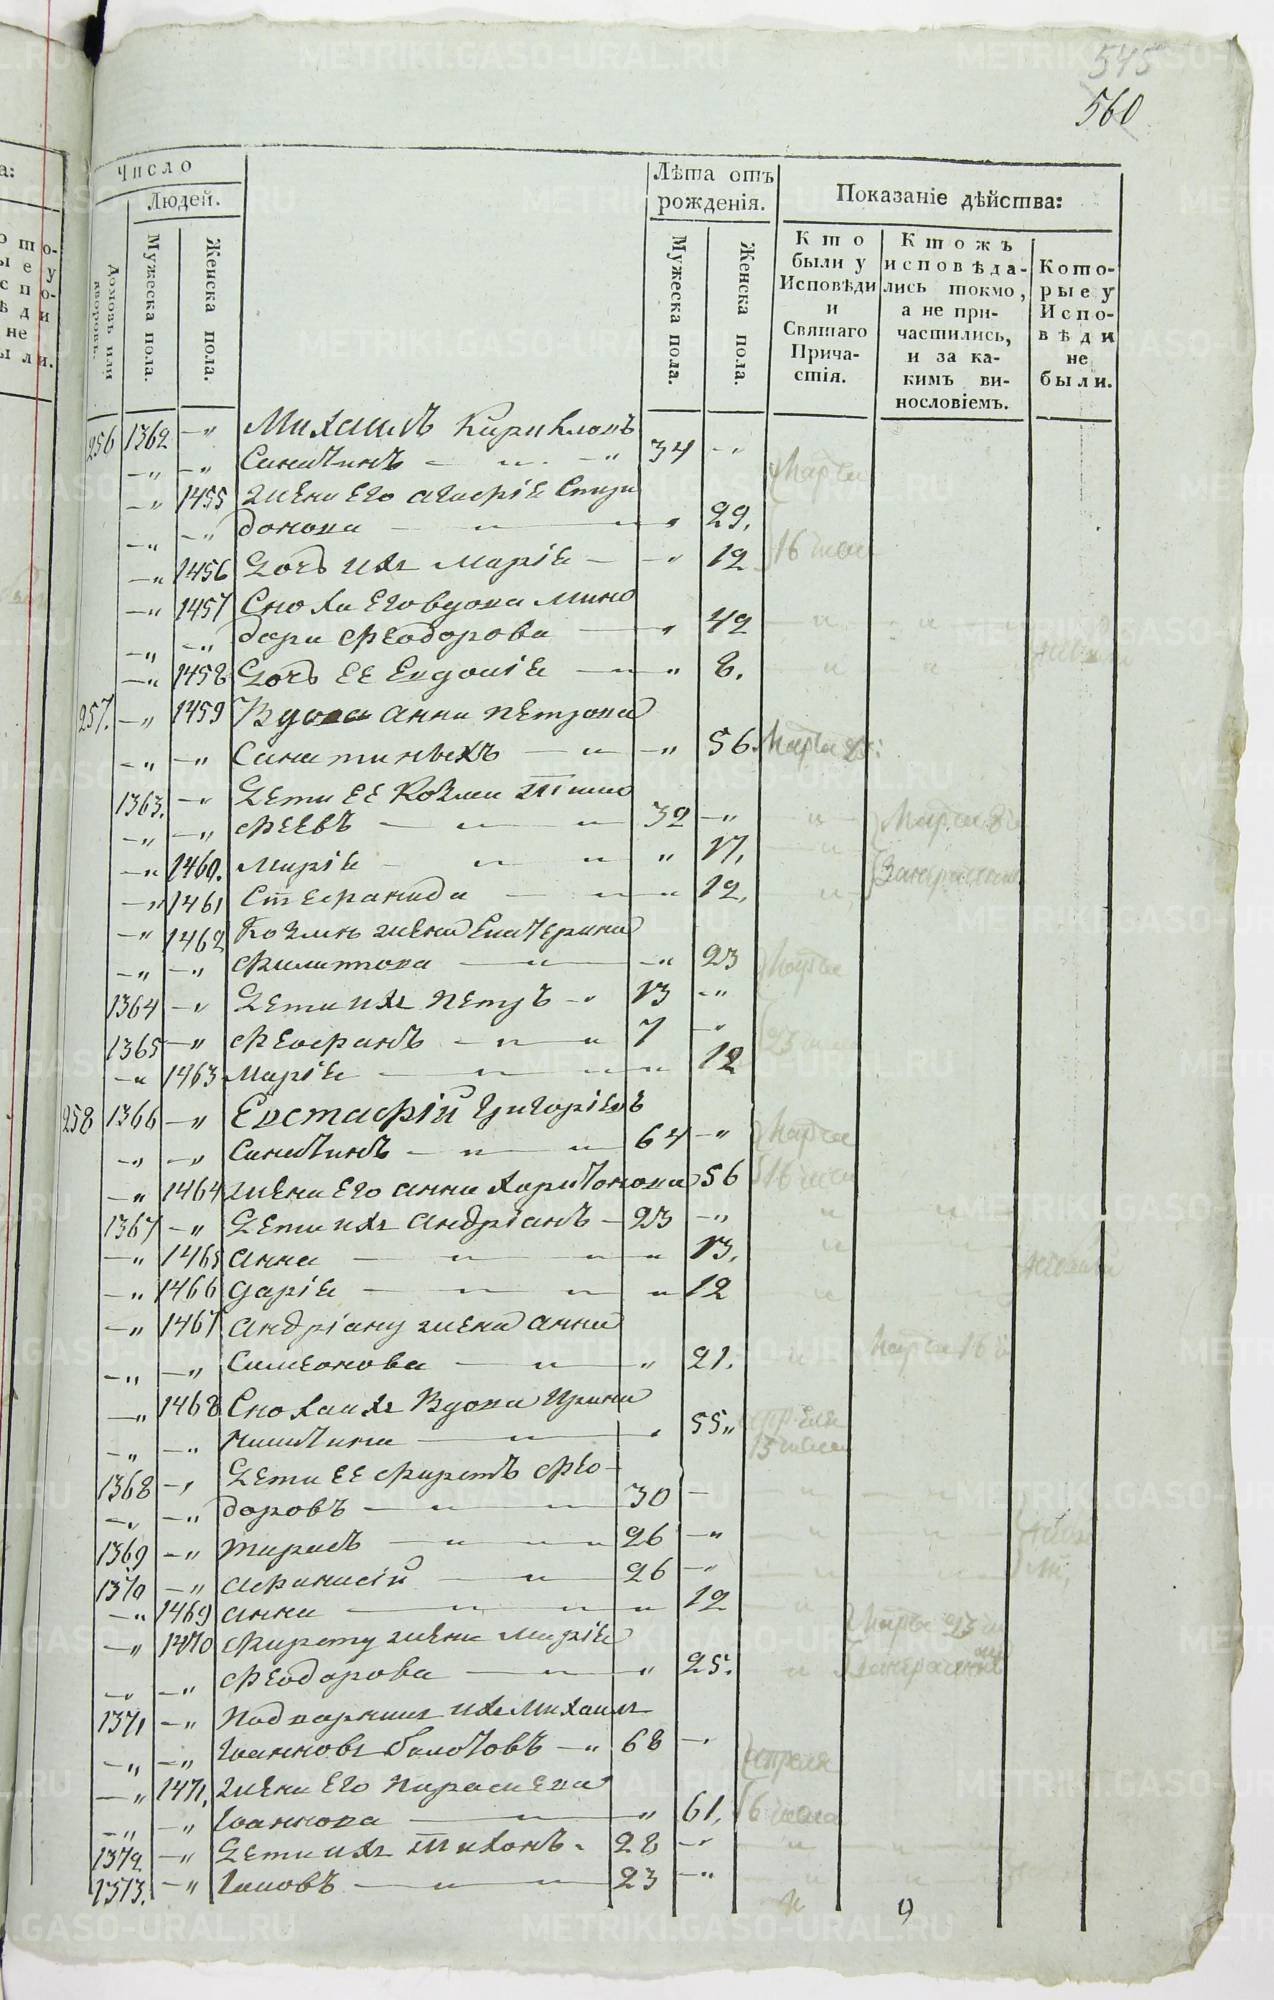 545
560
Число
Людей.
Домовъ или дворовъ.
Мужеска пола.
Женска пола.
Лѣта отъ рожденія.
Мужеска пола.
Женска пола.
Показаніе дѣйства:
Кто были у Исповѣди и Святаго Причастія.
Ктожъ исповѣдались токмо, а не причастились, и за какимъ винословіемъ.
Которые у Исповѣди не были.
256 1362 -„ Михаилъ Кириловъ
-„ -„ Санатинъ 34 -„
-„ 1455 жена его Агафія Спири
-„ -„ донова -„ 29. Марта
-„ 1456 Дочь ихъ Марія -„ 12 16 числа
-„ 1457 Сноха его вдова Мино
-„ -„ дора Феодорова -„ 42
-„ 1458 Дочь ее Евдокія -„ 8.
257. -„ 1459 Вдова Анна Петрова
-„ -„ Санатиныхъ -„ 56. Марта 23.
1363. -„ Дети ее Козма Тимо
-„ -„ феевъ 32 -„
-„ 1460. Марія -„ 17.
-„ 1461 Стефанида -„ 12.
-„ 1462 Козмы жена Екатерина
-„ -„ Филипова -„ 23 Марта
1364 -„ Дети ихъ Петръ 13 -„
1365 -„ Феофанъ 7 -„ 23 числа
-„ 1463 Марія -„ 12
258 1366 -„ Евстафій Григоріевъ
-„ -„ Санатинъ 64 -„ Марта
-„ 1464 жена его Анна Харитонова 56 16 числа
1367 -„ Дети ихъ Андріанъ 23 -„
-„ 1465 Анна -„ 13.
-„ 1466 Дарія -„ 12
-„ 1467 Андріану жена Анна
-„ -„ Симеонова -„ 21. Марта 16
-„ 1468 Сноха ихъ вдова Ирина
-„ -„ Никитина -„ 55„ апреля 13 числа
1368 -„ Дети ее Фирстъ Фео-
-„ -„ доровъ 30 -
1369 -„ Тарасъ 26 -„
1370 -„ Афанасій 26 -„
-„ 1469 Анна -„ 12
-„ 1470 Фирсту жена Марія
-„ -„ Феодорова -„ 25. Марта 23
1371 -„ Подворникъ ихъ Михаилъ
-„ -„ Іоанновъ 68 -„ апреля
-„ 1471. жена его Параскева
-„ -„ Іоаннова -„ 61. 6 числа
1372 -„ Дети ихъ Тихонъ 28 -„
1373. -„ Іаковъ 23 -„